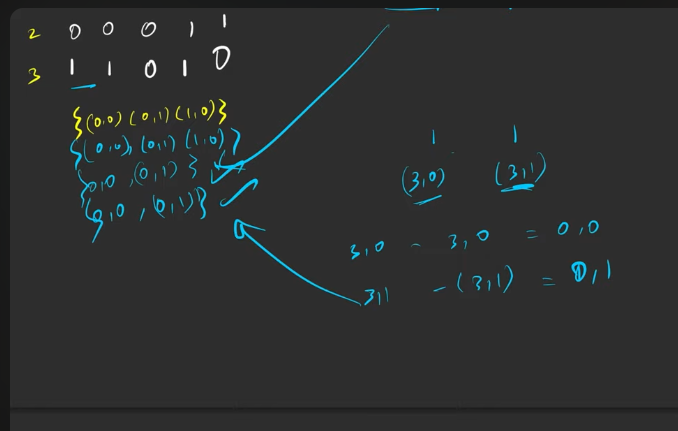 2 0 0 0 1 1
3 1 1 0 1 0
{(0,0) (0,1) (1,0)}
{(0,0), (0,1) (1,0)}
{0,0, (0,1)}
{0,0, (0,1)}
1 1
(3,0) (3,1)
3,0 - 3,0 = 0,0
3,1 - (3,1) = 0,1